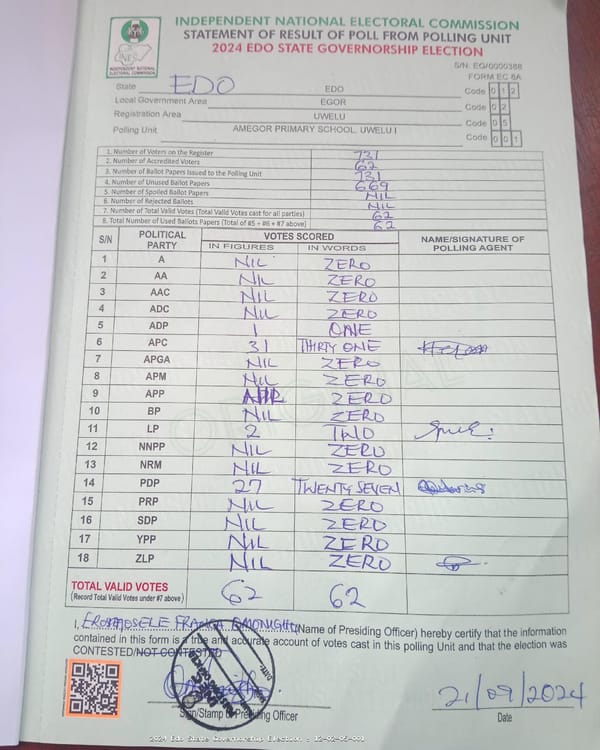 INDEPENDENT NATIONAL ELECTORAL COMMISSION
STATEMENT OF RESULT OF POLL FROM POLLING UNIT
2024 EDO STATE GOVERNORSHIP ELECTION
INDEPENDENT NATIONAL
ELECTORAL COMMISSION
S/N: EG/0000388
FORM EC 8A
State EDO EDO Code 0 1 2
Local Government Area EGOR Code 0 2
Registration Area UWELU Code 0 5
Polling Unit AMEGOR PRIMARY SCHOOL, UWELU I Code 0 0 1
1. Number of Voters on the Register 731
2. Number of Accredited Voters 62
3. Number of Ballot Papers Issued to the Polling Unit 731
4. Number of Unused Ballot Papers 669
5. Number of Spoiled Ballot Papers NIL
6. Number of Rejected Ballots NIL
7. Number of Total Valid Votes (Total Valid Votes cast for all parties) 62
8. Total Number of Used Ballots Papers (Total of #5 + #6 + #7 above) 62
S/N POLITICAL PARTY VOTES SCORED NAME/SIGNATURE OF POLLING AGENT
IN FIGURES IN WORDS
1 A NIL ZERO
2 AA NIL ZERO
3 AAC NIL ZERO
4 ADC NIL ZERO
5 ADP 1 ONE
6 APC 31 THIRTY ONE
7 APGA NIL ZERO
8 APM NIL ZERO
9 APP ZERO
10 BP NIL ZERO
11 LP 2 TWO
12 NNPP NIL ZERO
13 NRM NIL ZERO
14 PDP 27 TWENTY SEVEN
15 PRP NIL ZERO
16 SDP NIL ZERO
17 YPP NIL ZERO
18 ZLP NIL ZERO
TOTAL VALID VOTES 62 62
(Record Total Valid Votes under #7 above)
I, FRANCA (Name of Presiding Officer) hereby certify that the information
contained in this form is a true and accurate account of votes cast in this polling Unit and that the election was
CONTESTED/NOT CONTESTED
21/09/2024
Sign/Stamp of Presiding Officer Date
2024 Edo State Governorship Election : 12-02-05-001